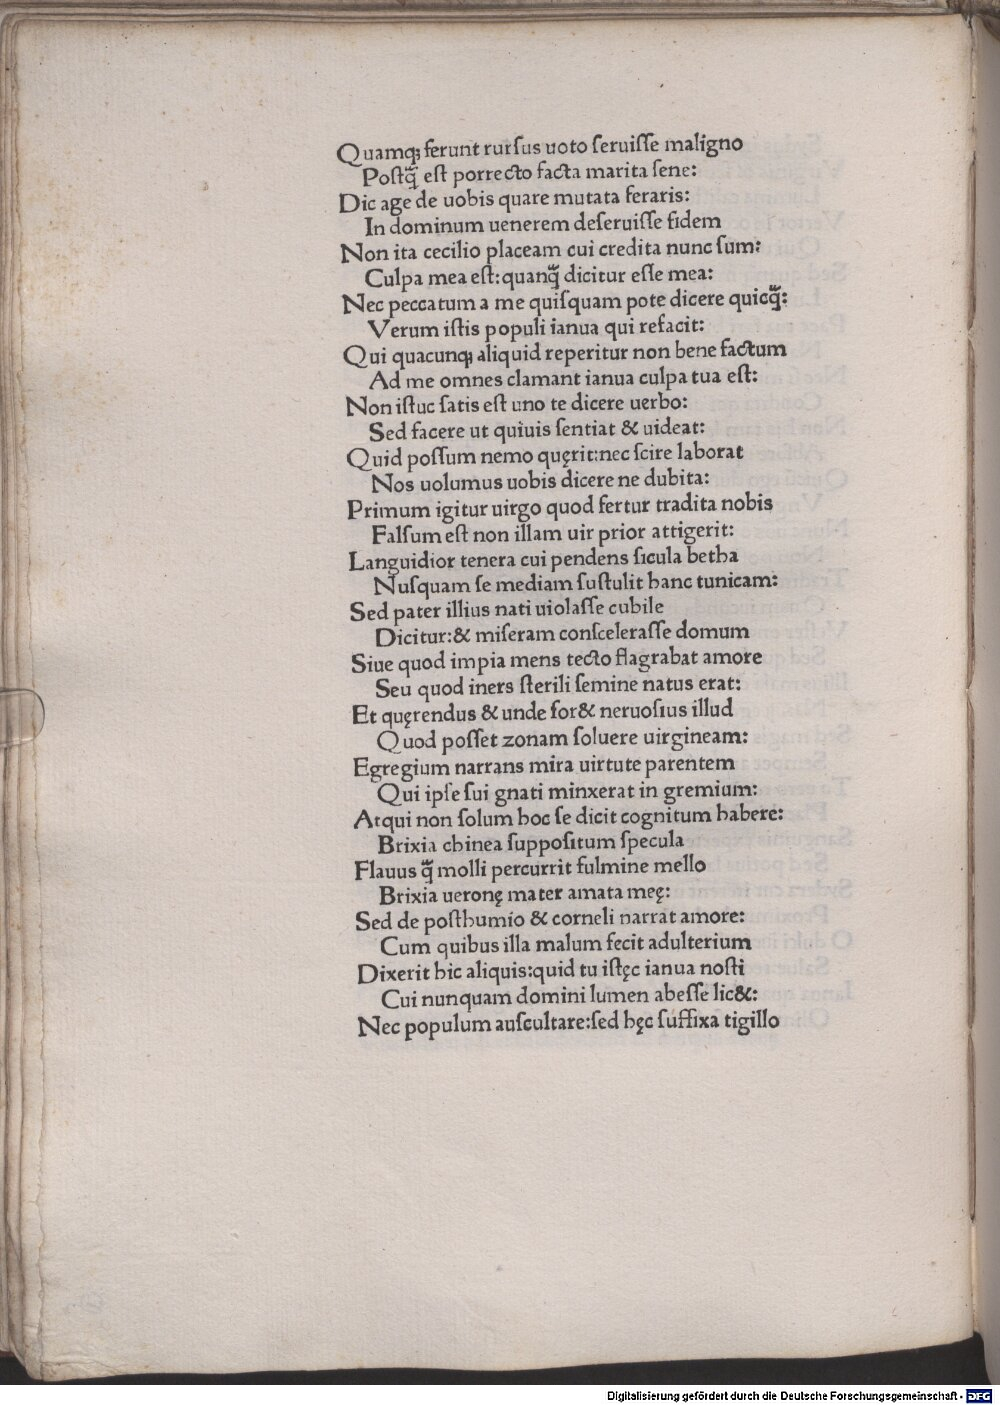 Quamqꝫ ferunt rurſus uoto ſeruiſſe maligno
Poſtq̃ eſt porrecto facta marita ſene:
Dic age de uobis quare mutata feraris:
In dominum uenerem deſeruiſſe fidem
Non ita cecilio placeam cui credita nunc ſum:
Culpa mea eſt: quanq̃ dicitur eſſe mea:
Nec peccatum a me quiſquam pote dicere quicq̃:
Verum iſtis populi ianua qui refacit:
Qui quacunqꝫ aliquid reperitur non bene factum
Ad me omnes clamant ianua culpa tua eſt:
Non iſtuc ſatis eſt uno te dicere uerbo:
Sed facere ut quiuis ſentiat & uideat:
Quid poſſum nemo quęrit:nec ſcire laborat
Nos uolumus uobis dicere ne dubita:
Primum igitur uirgo quod fertur tradita nobis
Falſum eſt non illam uir prior attigerit:
Languidior tenera cui pendens ſicula betha
Nuſquam ſe mediam ſuſtulit hanc tunicam:
Sed pater illius nati uiolaſſe cubile
Dicitur:& miſeram conſceleraſſe domum
Siue quod impia mens tecto flagrabat amore
Seu quod iners ſterili ſemine natus erat:
Et quęrendus & unde for& neruoſius illud
Quod poſſet zonam ſoluere uirgineam:
Egregium narrans mira uirtute parentem
Qui ipſe ſui gnati minxerat in gremium:
Atqui non ſolum hoc ſe dicit cognitum habere:
Brixia chinea ſuppoſitum ſpecula
Flauus q̃ molli percurrit fulmine mello
Brixia ueronę mater amata meę:
Sed de poſthumio & corneli narrat amore:
Cum quibus illa malum fecit adulterium
Dixerit hic aliquis:quid tu iſtęc ianua noſti
Cui nunquam domini lumen abeſſe lic&:
Nec populum auſcultare:ſed hęc ſuffixa tigillo
Digitalisierung gefördert durch die Deutsche Forschungsgemeinschaft - DFG